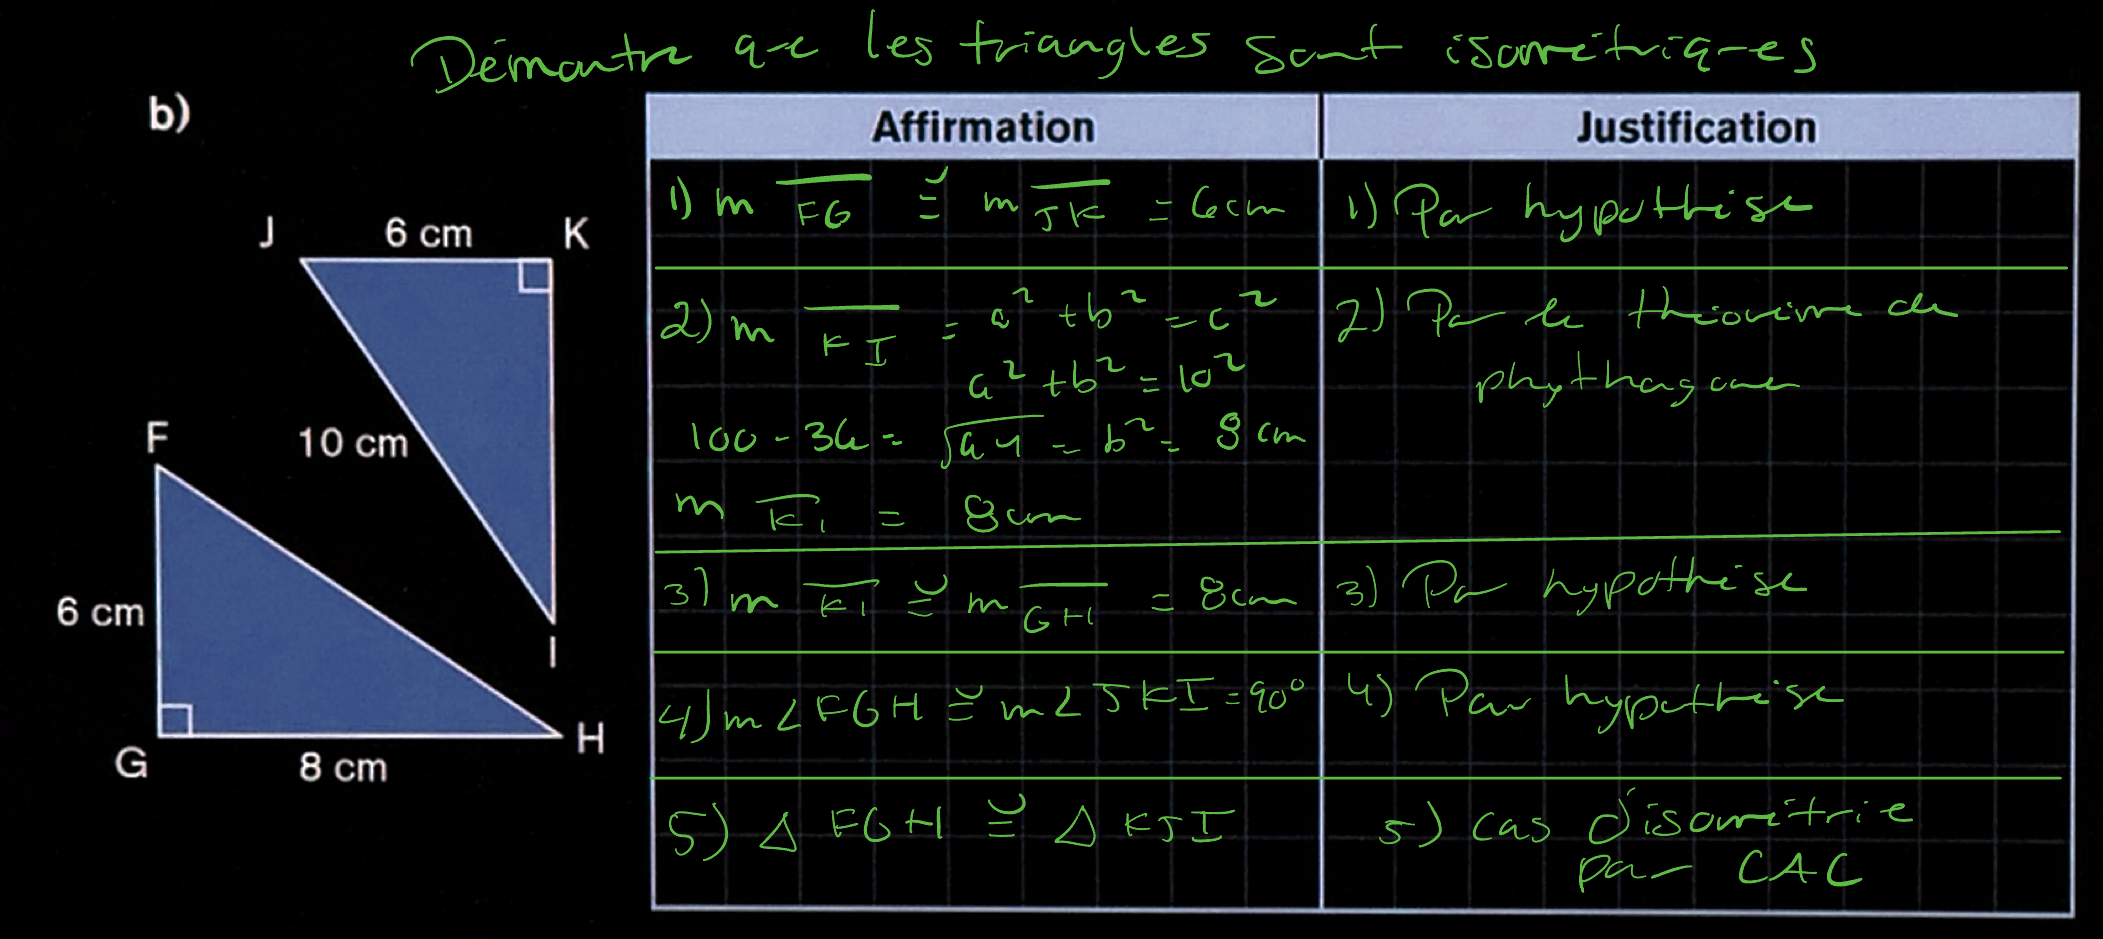 Démontre que les triangles sont isométriques
b)
Affirmation
Justification
J 6 cm K
10 cm
I
F
6 cm
G
8 cm
H
1) m FG ≅ m JK = 6cm
1) Par hypothèse
2) m KI = a² + b² = c²
a² + b² = 10²
100 - 36 = √64 = b² = 8 cm
m KI = 8cm
2) Par le théorème de
phythagore
3) m KI ≅ m GH = 8cm
3) Par hypothèse
4) m∠FGH ≅ m∠JKI = 90°
4) Par hypothèse
5) Δ FGH ≅ Δ KJI
5) cas d'isométrie
par CAC